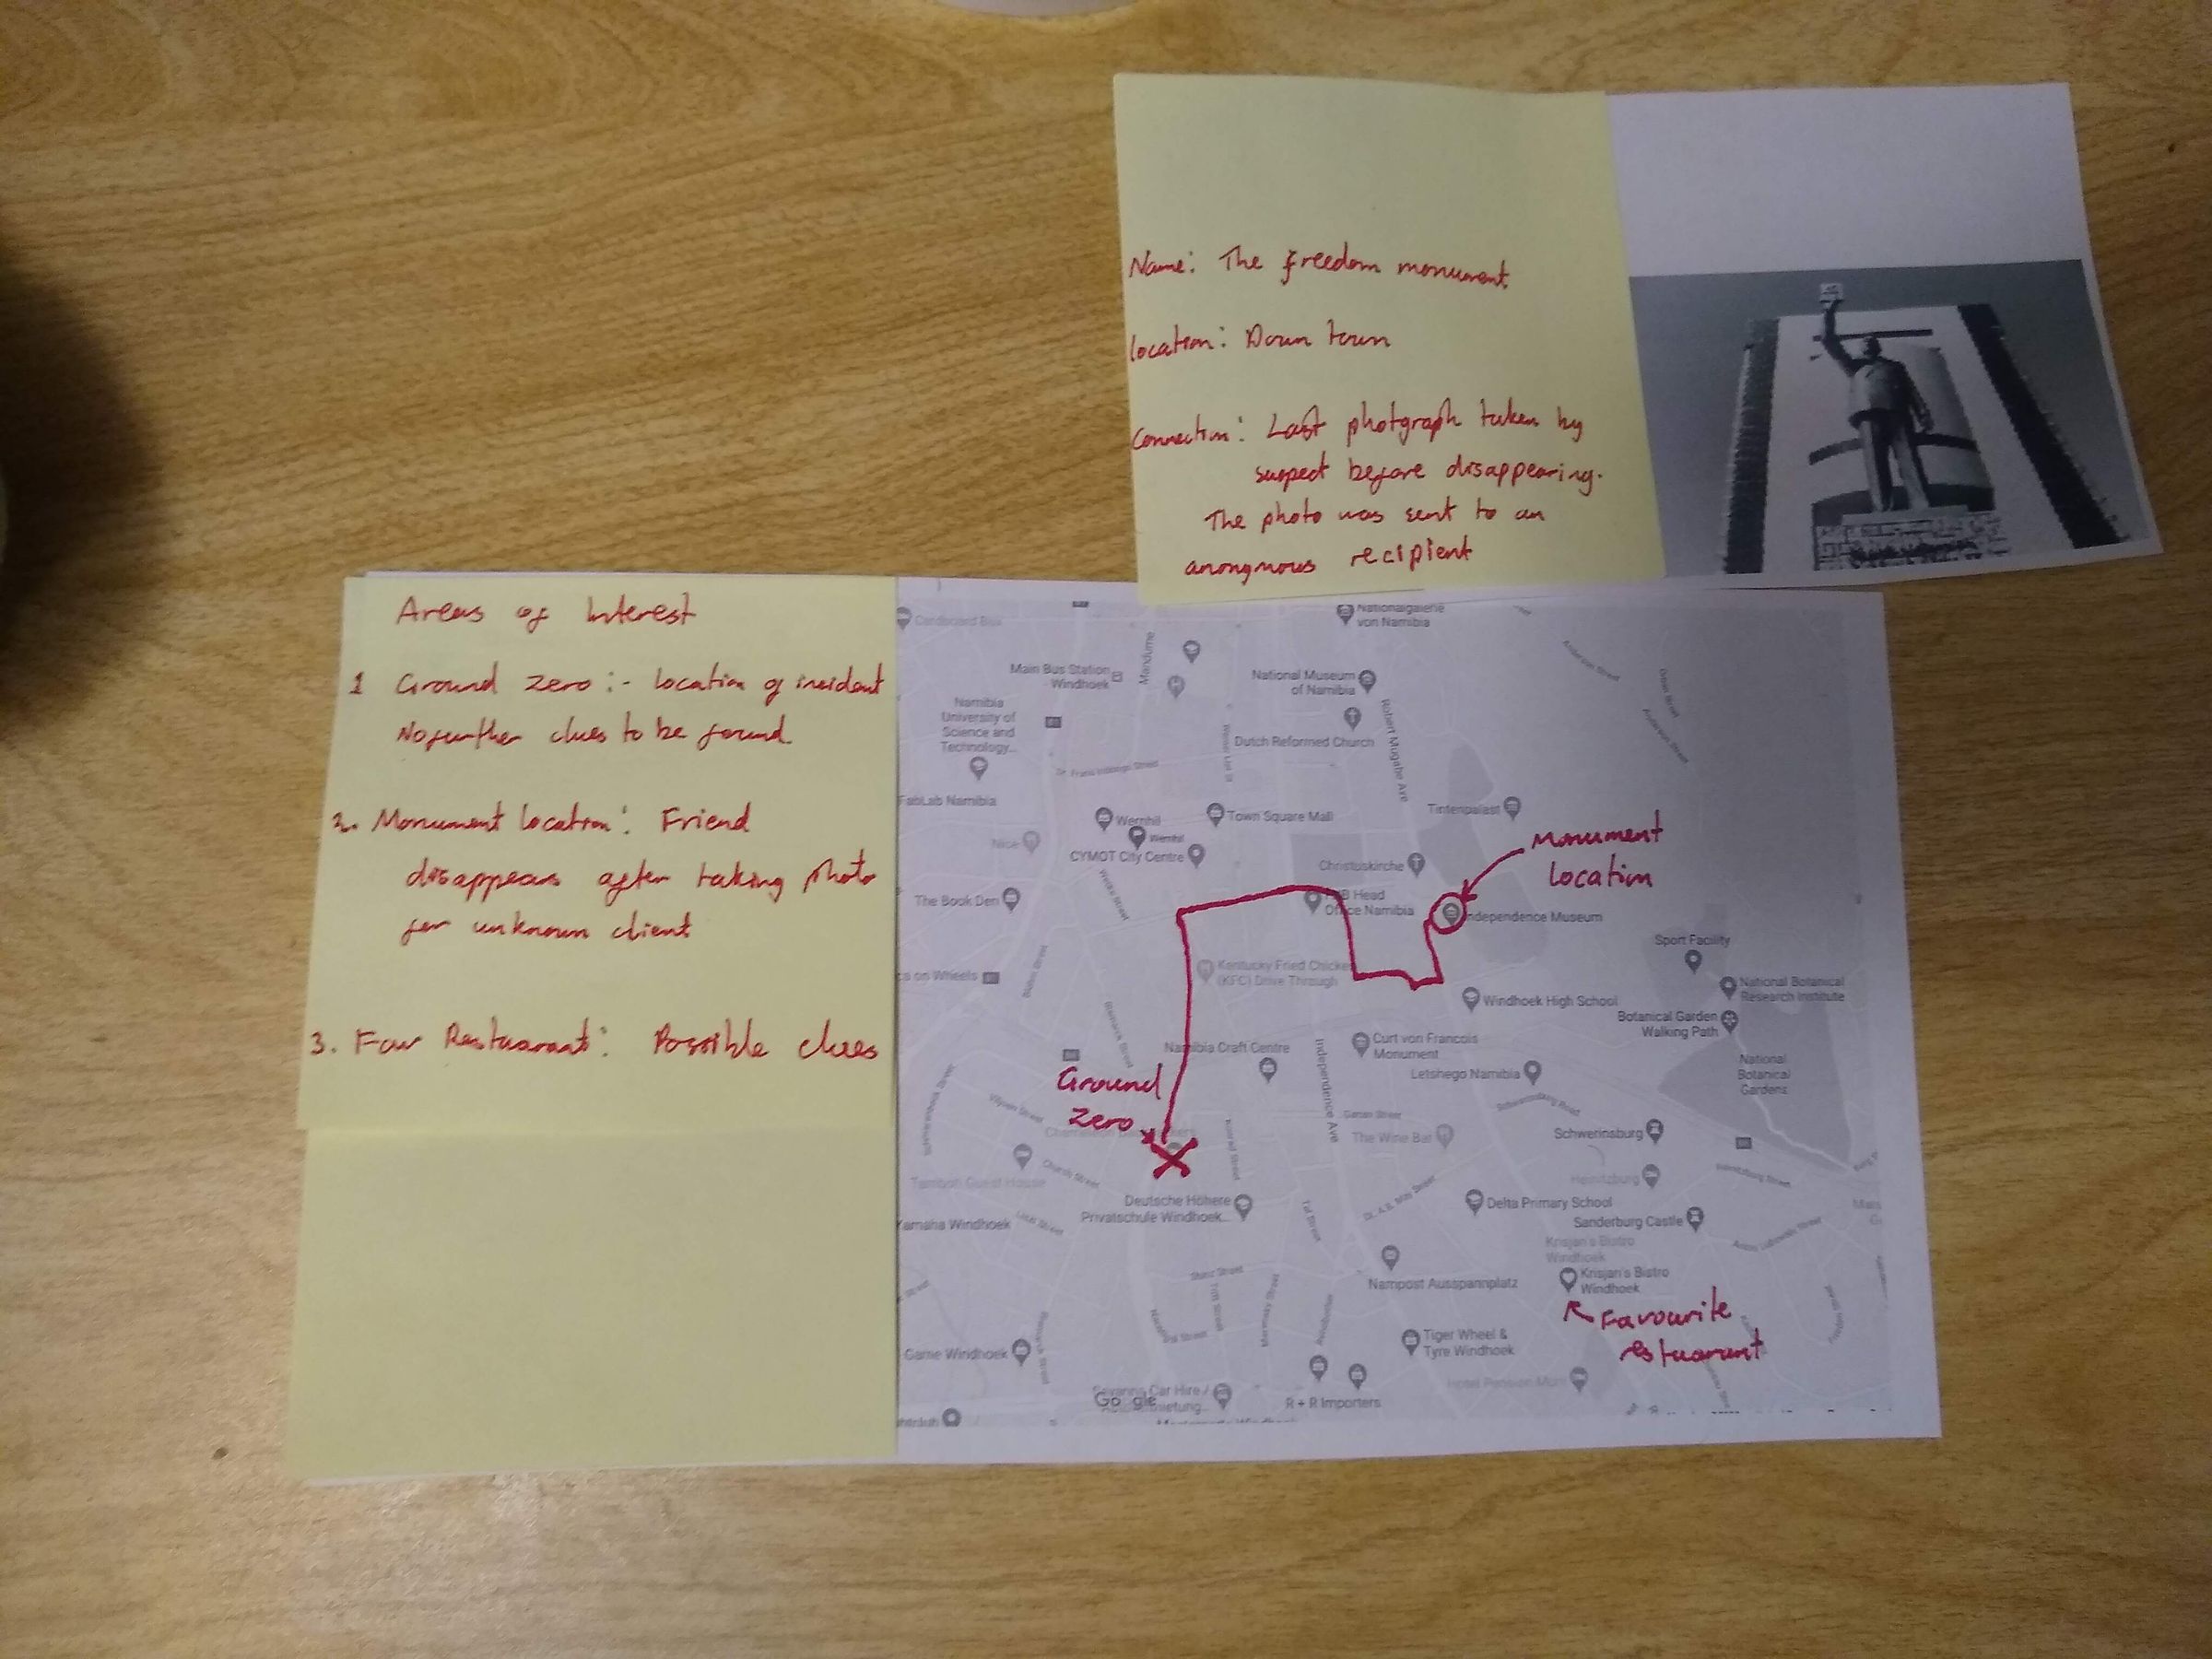 Name: The freedom monument
location: Down town
Connection: Last photgraph taken by
suspect before disappearing.
The photo was sent to an
anongmous recipient
Areas of Interest
1 Ground zero :- location of incident
No further clues to be found
2. Monument location: Friend
disappears after taking photo
for unknown client
3. Fav Restuarant: Possible clues
Cardboard Box
Nationalgalerie
von Namibia
Main Bus Station
Windhoek
Mandume
National Museum
of Namibia
Namibia
University of
Science and
Technology...
Dutch Reformed Church
Robert Mugabe Ave
FabLab Namibia
Wernhil
Wernhil
Town Square Mall
Tintenpalast
Nice
CYMOT City Centre
Christuskirche
Monument
location
The Book Den
B Head
Office Namibia
Independence Museum
Sport Facility
s on Wheels
Kentucky Fried Chicke
(KFC) Drive Through
Windhoek High School
National Botanical
Research Institute
Botanical Garden
Walking Path
Namibia Craft Centre
Curt von Francois
Monument
Letshego Namibia
National
Botanical
Gardens
Independence Ave
Bismarck Street
Ground
zero
Garten Street
The Wine Bar
Schwerinsburg
Heinitzburg
Church Street
Tamboti Guest House
Deutsche Höhere
Privatschule Windhoek...
Delta Primary School
Sanderburg Castle
Yamaha Windhoek
Tal Street
Krisjan's Bistro
Windhoek
Krisjan's Bistro
Windhoek
Nampost Ausspannplatz
Favourite
restuarant
Game Windhoek
Tiger Wheel &
Tyre Windhoek
Savanna Car Hire /
Google
R + R Importers